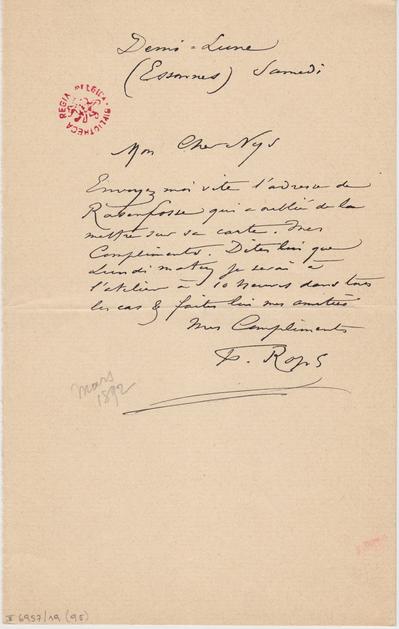 Demi-Lune
(Essonnes) Samedi
REGIA BELGICA · BIBLIOTHECA
Mon Cher Nys
Envoyez moi vite l'adresse de
Rassenfosse qui a oublié de la
mettre sur sa carte. Mes
Compliments. Dites lui que
Lundi matin je serai à
l'atelier à 10 heures dans tous
les cas & faites lui mes amitiés
Mes Compliments
F. Rops
mars
1892
II 6957/19 (95)